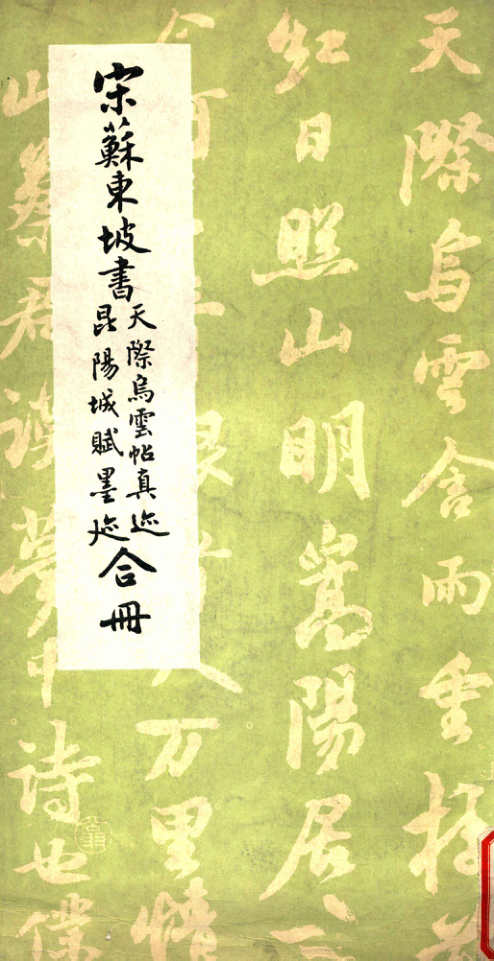 天際烏雲含雨重樓前
紅日照山明嵩陽居士
今何眼人万里情
蔡君謨夢中詩也僕
宋蘇東坡書
天際烏雲帖真迹
昆陽城賦墨迹
合冊